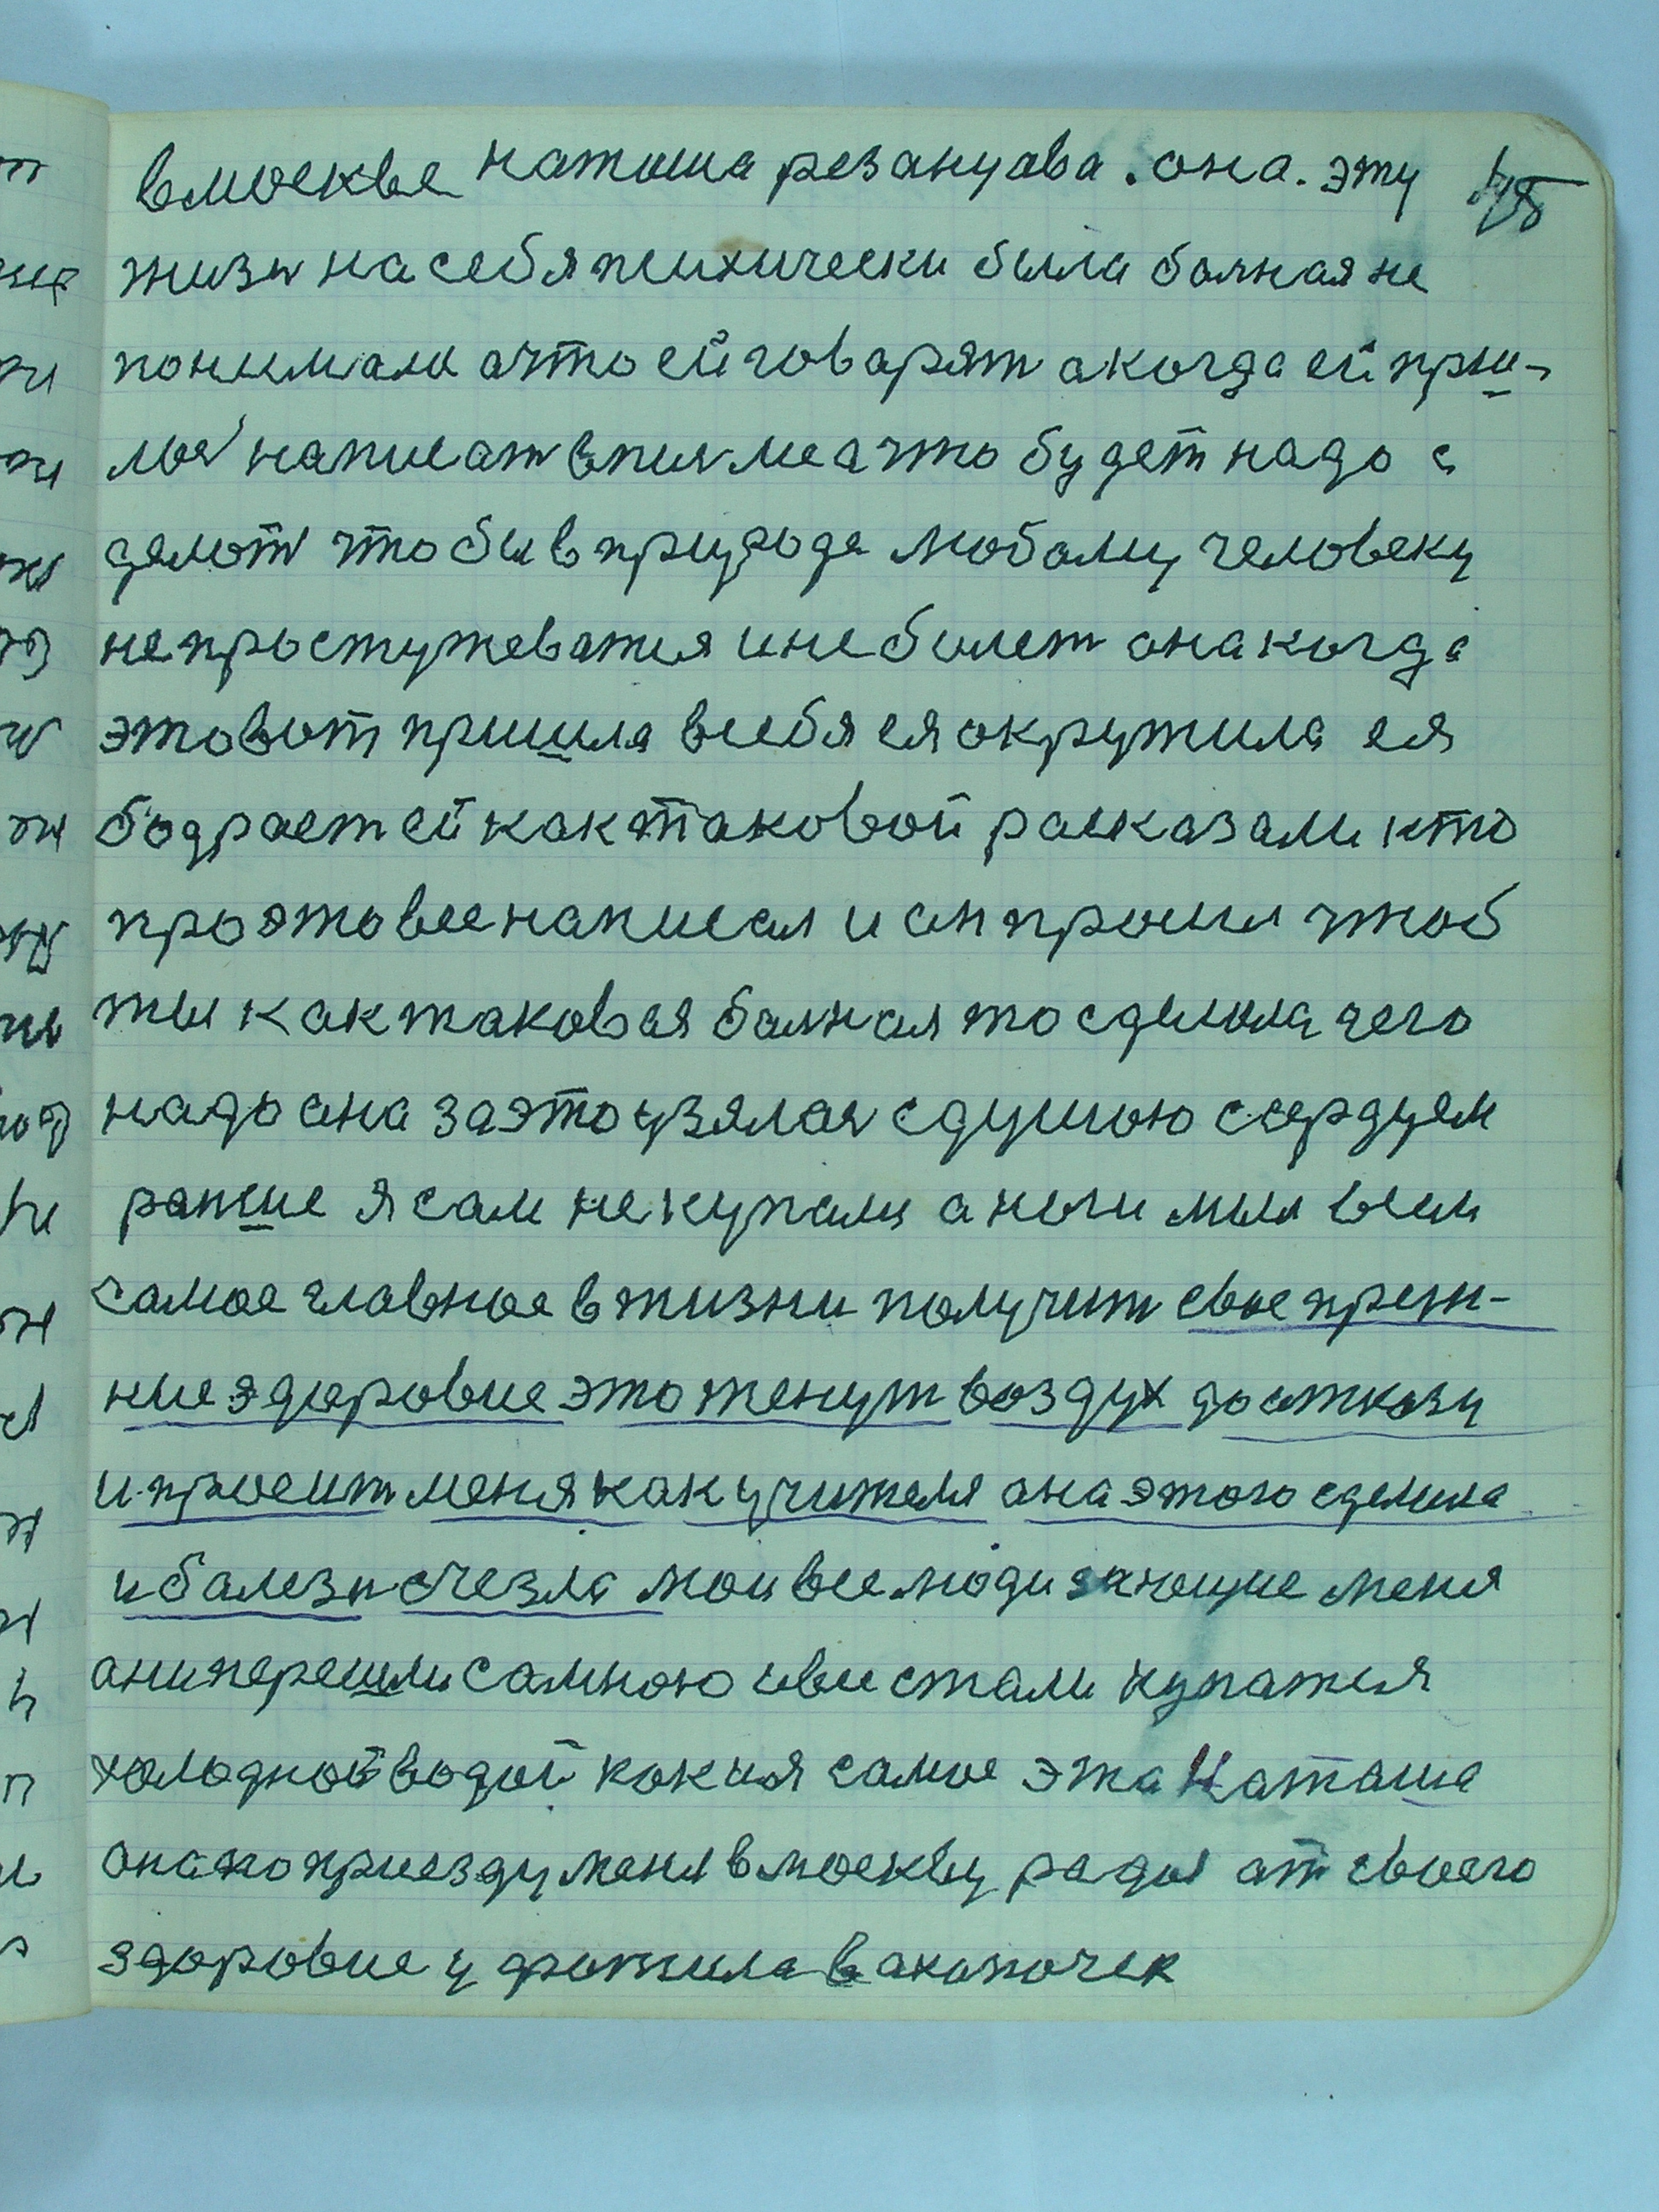 вмоскве наташа резанцава . она . эту
жизн насебя психически была болная не
понимала ачто ейговарят акогда ей приш-
лос написат впися меачто будет надо с
делат чтобы вприроде любому человеку
непростужеватся инеболет она когда
этовот пришла всебя ея окружила ея
бодраст ей кактаковой расказали кто
проэтовсенаписал и ап просил чтоб
ты кактаковая балная то сделала чего
надо она заэтоузялас сдушою сердцем
ранше я сам некупалц а ноги мыл всем
самое главное вжизни получит свое преж-
ние здоровие это тенут воздух до отказу
и просит меня как учителя она этого сделила
и балезн счезла мои все люди знающие меня
ани перешли самною ивсе стали купатся
холодной водой как ия самое эта Наташа
она по приезду меня вмоскву рады от своего
здоровие у дротила ваконочек